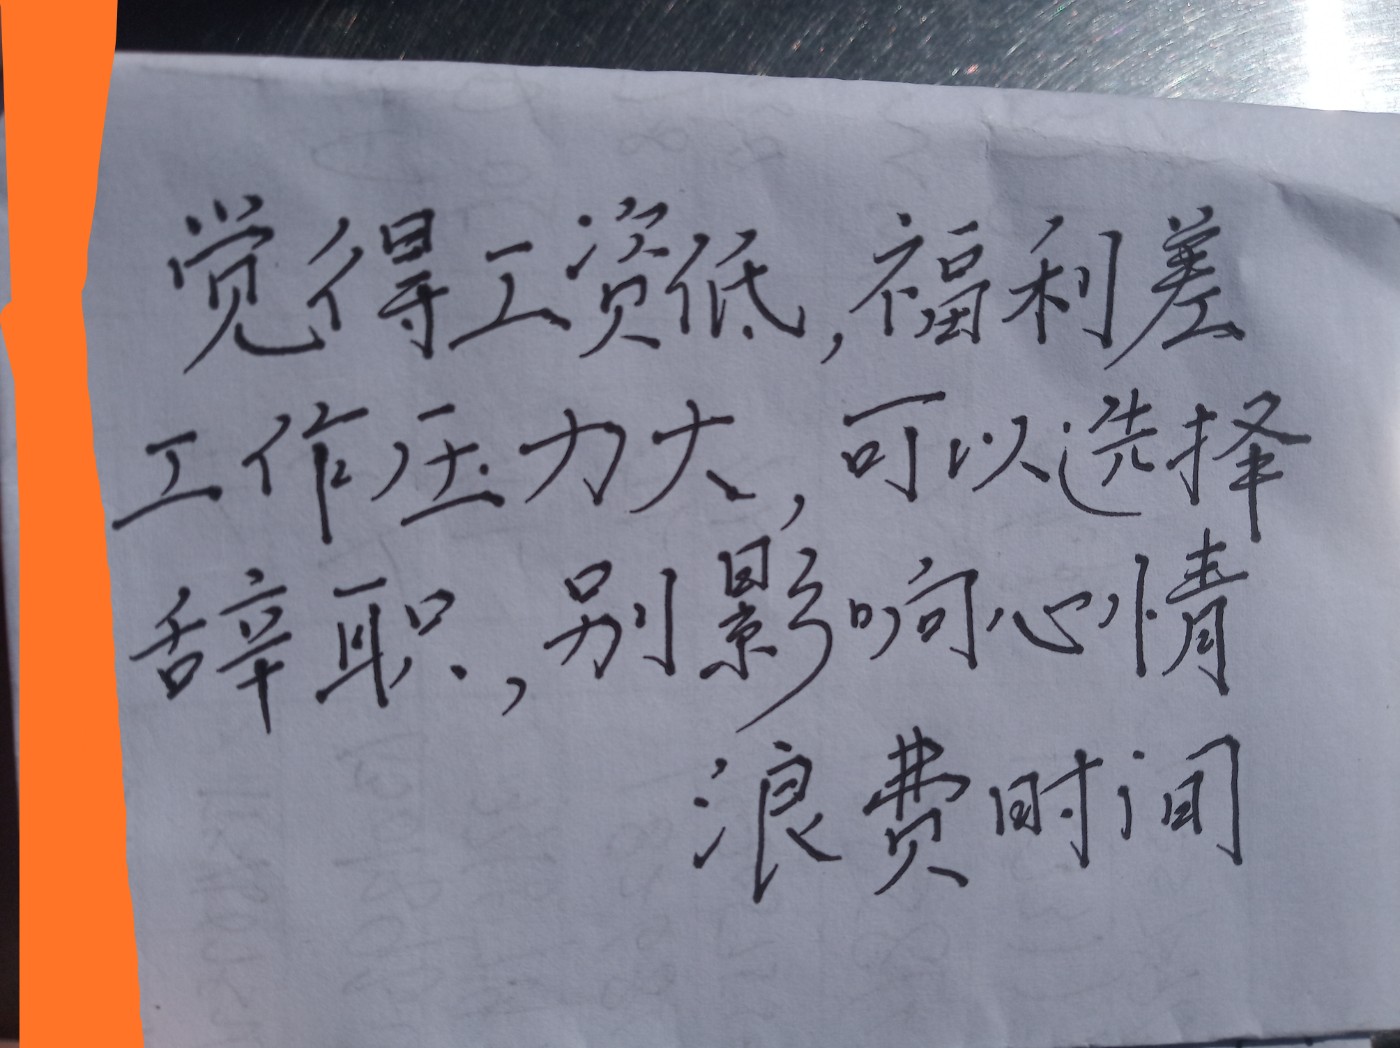 觉得工资低,福利差
工作压力大,可以选择
辞职,别影响心情
浪费时间